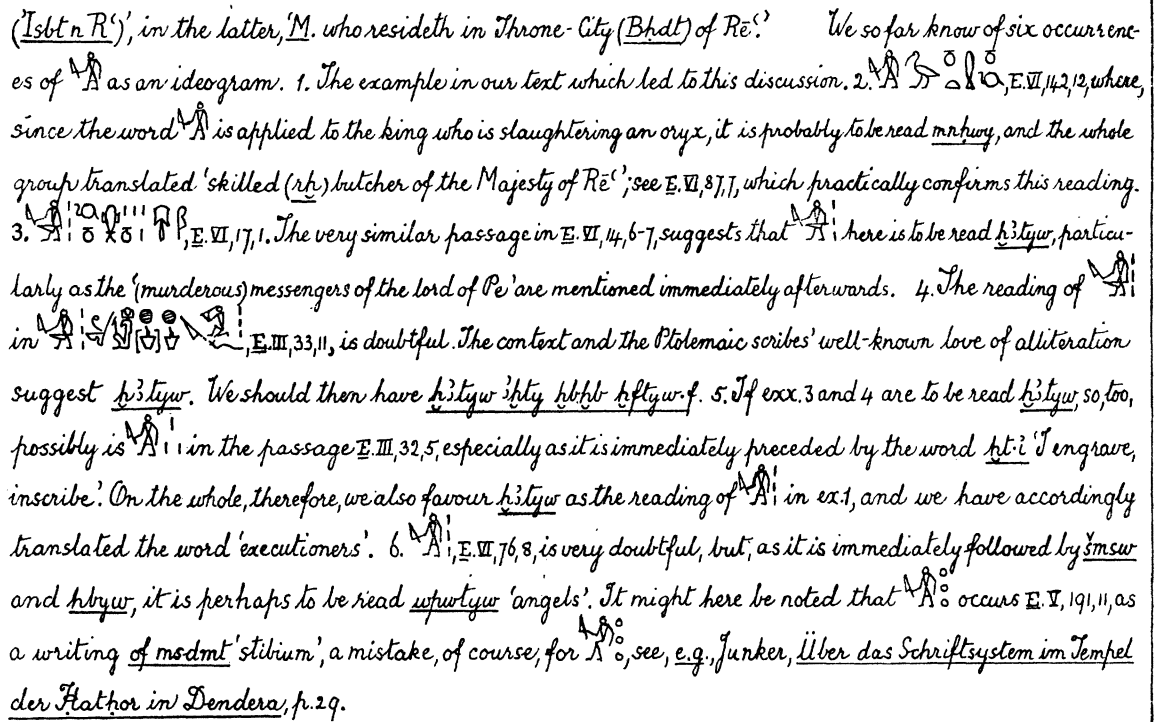 (Ἰsbt n Rꜥ)', in the latter, 'M. who resideth in Throne-City (Bḥdt) of Rēꜥ.' We so far know of six occurrenc-
es of as an ideogram. 1. The example in our text which led to this discussion. 2. , E. VI, 142, 12, where,
since the word is applied to the king who is slaughtering an oryx, it is probably to be read mnḥwy, and the whole
group translated 'skilled (rḫ) butcher of the Majesty of Rēꜥ'; see E. VI, 87, 7, which practically confirms this reading.
3. , E. VI, 17, 1. The very similar passage in E. VI, 14, 6-7, suggests that here is to be read ḫꜣtyw, particu-
larly as the '(murderous) messengers of the lord of Pe' are mentioned immediately afterwards. 4. The reading of
in , E. III, 33, 11, is doubtful. The context and the Ptolemaic scribes' well-known love of alliteration
suggest ḫꜣtyw. We should then have ḫꜣtyw ꜣḫty ḫbḫb ḫftyw·f. 5. If exx. 3 and 4 are to be read ḫꜣtyw, so, too,
possibly is in the passage E. III, 32, 5, especially as it is immediately preceded by the word ḫt·ἰ 'I engrave,
inscribe'. On the whole, therefore, we also favour ḫꜣtyw as the reading of in ex. 1, and we have accordingly
translated the word 'executioners'. 6. , E. VI, 76, 8, is very doubtful, but, as it is immediately followed by šmsw
and hbyw, it is perhaps to be read wpwtyw 'angels'. It might here be noted that occurs E. V, 191, 11, as
a writing of msdmt 'stibium', a mistake, of course, for , see, e.g., Junker, Über das Schriftsystem im Tempel
der Ḥatḥor in Dendera, p. 29.